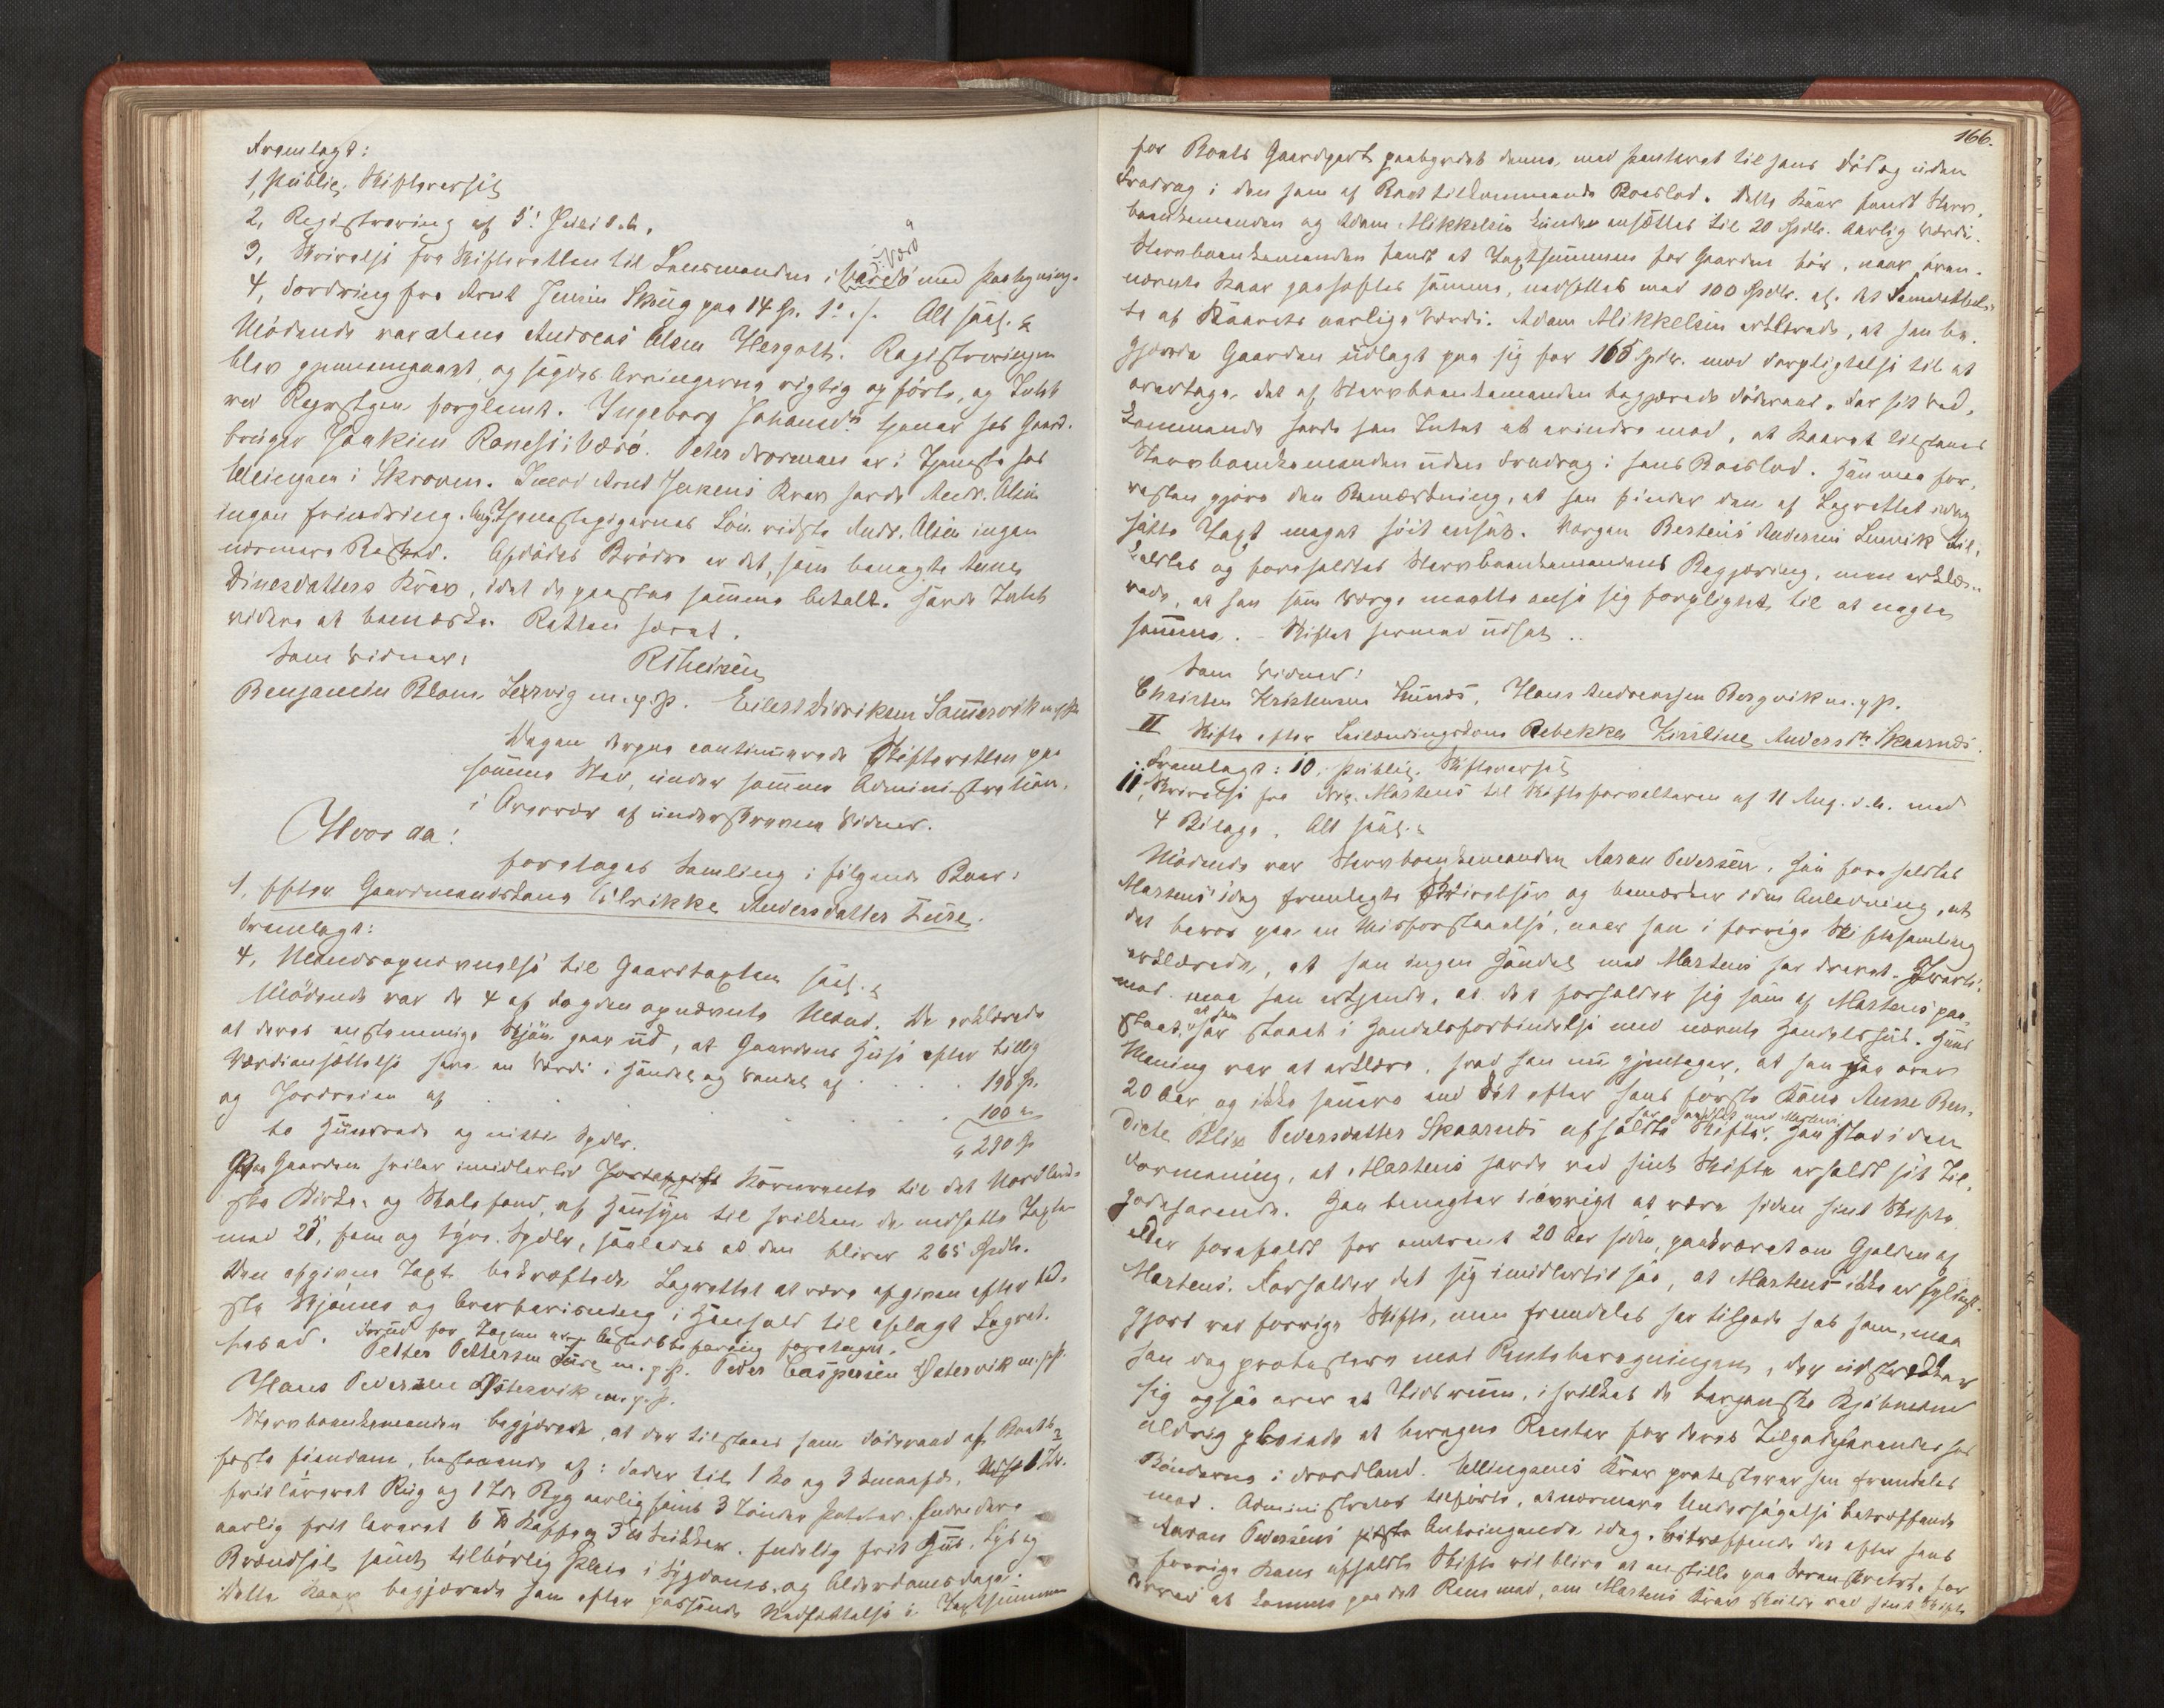 Fremlagt:
1, Public. Skifteversit
2, Registrering af 5' Juni d. A.
3, Skrivelse fra Skifteretten til Lensmanden i Værø med Paategning.
4, Fordring fra Arnt Jensen Skrug paa 14 Sp. 1 /. Alt saal.
Mødende var alene Andreas Olsen Hergott. Registreringen
blev gjennemgaaet, og sagdes Arvingerne rigtig opførte, og Intet
ved Registgen forglemt. Ingeborg Johansdr tjener hos Gaard-
bruger Joakim Ronesi i Værø. Peter Norman er i Tjeneste hos
Ellingsen i Skroven. Imod Arnt Jensens Krav havde Andr. Olsen
ingen Erindring. Ang. Tjenestepigernes Løn vidste Andr. Olsen ingen
nærmere Besked. Afdødes Brødre er det, som benægte Anne
Dinesdatters Krav, idet de paastaa samme betalt. Havde Intet
videre at bemærke. Retten hævet.
Som Vidner: RTheisen
Benjamin Blom Lervig m. p. P. Eilert Didriksen Sommervik m. p. P.
Dagen derpaa continuerede Skifteretten paa
samme Sted, under samme Administration,
i Overvær af underskrevne Vidner.
Hvor da!
foretoges Samling i følgende Boer:
1, Efter Gaardmandskone Ulrikke Andersdatter Fure.
Fremlagt:
4, Mændsopnævnelse til Gaardtaxten saal.
Mødende var de 4 af Fogden opnævnte Mænd. De erklærede
at deres enstemmige Skjøn gaar ud, at Gaardens Huse efter billig
Værdiansættelse have en Værdi i Handel og Vandel af . . . . 190 Sp.
og Jordveien af . . . . . 100 "
to Hundrede og nitti Spdlr. " 290 Sp
Paa Gaarden hviler imidlertid Jordafgift Kornrente til det Nordland-
ske Kirke- og Skolefond, af Hensyn til hvilken de nedsatte Taxten
med 25, fem og tyve Spdlr, saaledes at den bliver 265 Spdlr.
Den afgivne Taxt bekræftede Lagrettet at være afgiven efter bed-
ste Skjønne og Overbevisning i Henhold til aflagt Lagret-
tesed. Forud for Taxten var Aastedsbefaring foretagen.
Petter Pettersen Fure m. p. P. Peder Caspersen Østervik m. p. P.
Hans Pedersen Østervik m. p. P.
Stervboenkemanden begjærede, at der tilstaaes ham Føderaad af Boets
faste Eiendom, bestaaende af: Foder til 1 Ko og 3 Smaafæ, 1 Td.
frit leveret Rug og 1 Td. Byg aarlig samt 3 Tønder Poteter. Endvidere
aarlig frit leveret 6 ℔ Kaffe og 3 ℔ Sukker. Endelig frit Hus, Lys og
Brændsel samt tilbørlig Pleie i Sygdoms- og Alderdomsdage.
Dette Kaar begjærede han efter passende Nedsættelse i Taxtsummen
166.
for Boets Gaardpart paabyrdet denne med Panteret til hans Død og uden
Fradrag i den ham af Boet tilkommende Boeslod. Dette Kaar fandt Sterv-
boenkemanden og Adam Mikkelsen kunde ansættes til 20 Spdlr. aarlig Værdi.
Stervboenkemanden fandt at Taxtsummen for Gaarden bør, naar oven-
nævnte Kaar paaheftes samme, nedsættes med 100 Spdlr. ef. det Femdobbel-
te af Kaarets aarlige Værdi. Adam Mikkelsen erklærede, at han be-
gjærede Gaarden udlagt paa sig for 165 Spdlr. mod Forpligtelse til at
overtage det af Stervboenkemanden begjærede Føderaad. For sit Ved-
kommende havde han Intet at erindre mod, at Kaaret tilstaaes
Stervboenkemanden uden Fradrag i hans Boeslod. Han maa for-
resten gjøre den Bemærkning, at han finder den af Lagrettet idag
satte Taxt meget høit ansat. Værgen Berteus Andersen Lervik til-
kaldtes og foreholdtes Stervboenkemandens Begjæring, men erklæ-
rede, at han som Værge maatte anse sig forpligtet til at negte
samme. - Skiftet hermed udsat..
Som Vidner:
Christen Kristensen Sunds. Hans Andreassen Bergvik m. p. P.
II Skifte efter Leilændingskone Rebekka Kirstine Andersdr Skaarnæs.
Fremlagt: 10, Public. Skifteversit
11, Skrivelse fra Mrg. Martens til Skifteforvalteren af 11 Aug. d. A. med
4 Bilage. Alt saal.
Mødende var Stervboenkemanden Aaron Pedersen. Han foreholdtes
Martens' idag fremlagte Skrivelse og bemærker i den Anledning, at
det beror paa en Misforstaaelse, naar han i forrige Skiftesamling
erklærede, at han ingen Handel med Martens har drevet. Tverti-
mod maa han erkjende, at det forholder sig som af Martens paa-
staaet, at han har staaet i Handelsforbindelse med nævnte Handelshus. Hans
Mening var at erklære, hvad han nu gjentager, at han paa over
20 Aar og ikke senere end det efter hans første Kone Anne Ben-
dicte Blix Pedersdatter Skaarnæs afholdte Skifte. har handlet med Martens. Han stod i den
Formening, at Martens havde ved hint Skifte erholdt sit Til-
godehavende. Han benægter iøvrigt at være siden hint Skifte
eller forefaldt for omtrent 20 Aar siden, paakrævet om Gjælden af
Martens. Forholder det sig imidlertid saa, at Martens ikke er fyldest-
gjort ved forrige Skifte, men fremdeles har tilgode hos ham, maa
han dog protestere mod Renteberegningen, der udstrækker
sig ogsaa over et Tidsrum, i hvilket de bergenske Kjøbmænd
aldrig pleiede at beregne Renter for deres Tilgodehavender hos
Bønderne i Nordland. Ellingsens Krav protesterer han fremdeles
mod. Administrator tilførte, at nærmere Undersøgelse betræffende
Aaron Pedersens sidste Anbringende idag, betræffende det efter hans
forrige Kone afholdte Skifte vil blive at anstille paa Sorenskriverk. for
derved at komme paa det Rene med, om Martens Krav skulde ved hint Skifte